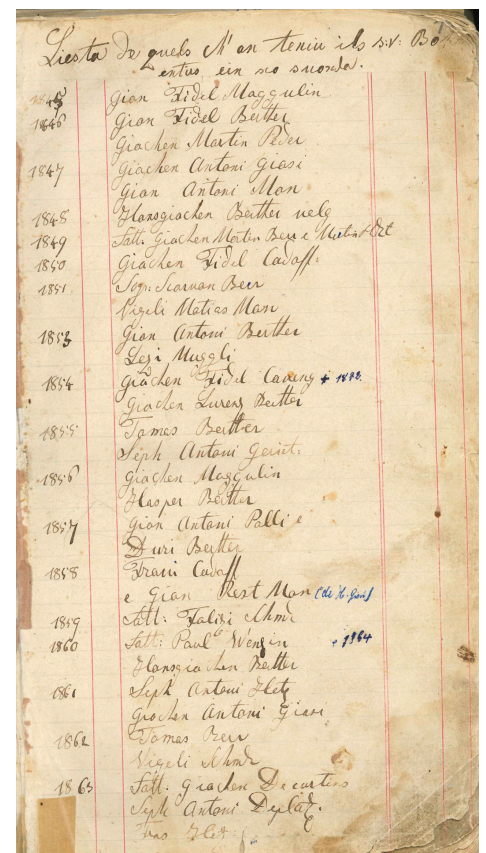 Liesta de quels M' an teniu ils s.v: Bo
entus, ein sco suonda.
1845 Gian Fidel Maggulin
1846 Gion Fidel Berther
Giachen Martin Peder
1847 Giachen Antoni Giasi
Gian Antoni Mon
1848 Hansgiachen Berther velg
1849 Satt: Giachen Morten Berr e
1850 Giachen Fidel Cadaff:
1851 Berr
Vigeli Matias Mon
1853 Gion Antoni Berther
Muggli
1854 Giachen Fidel Caveng + 1882.
Giachen Lurenz Berther
1855 Tomas Berther
Seph Antoni
1856 Giachen Maggulin
Hasper Berther
1857 Gion Antoni Palli
Duri Berther
1858 Frani Cadaff
e Gian Rest Mon
1859 Satt: Schmd
1860 Satt: Paul Wenzin + 1964
Hansgiachen Berther
1861 Seph Antoni Hetz
Giachen Antoni Giasi
1862 Tomas Berr
Vigeli Schmd
1863 Satt: Giachen Decurtins
Seph Antoni Deplaz.